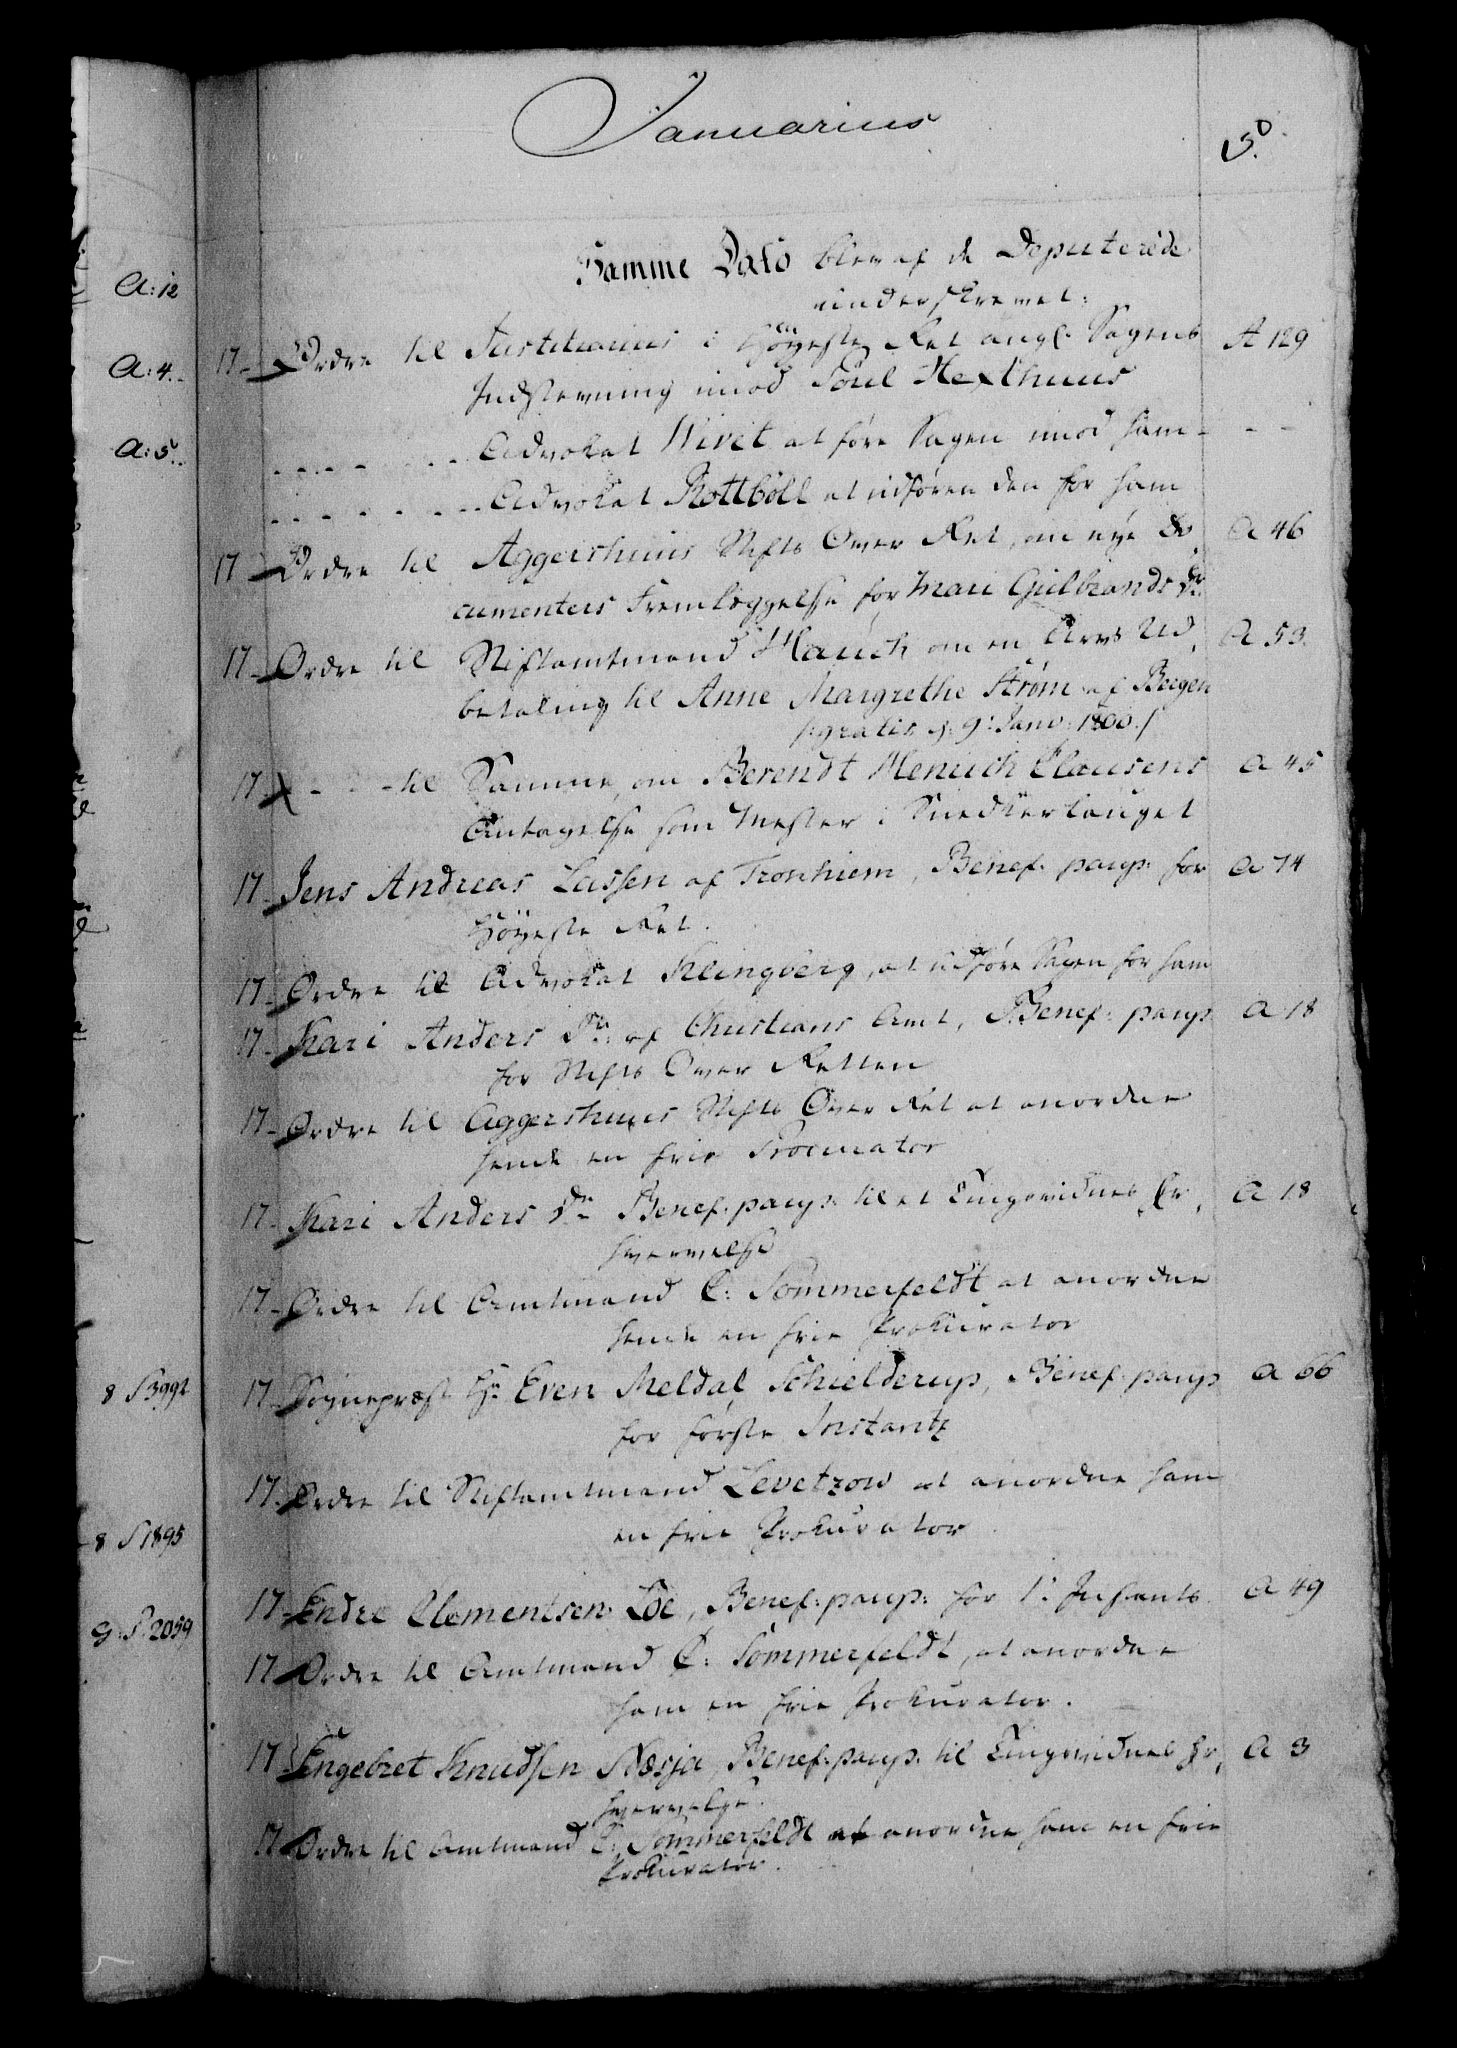 Januarius
5.
Samme Dato blev af de Deputerede
underskrevet:
17 - Ordre til Justitiarius i Höyeste Ret angl. Sagens A 129
Indstevning imod Poul Hexthuus
- - - - - - Advokat Wivet at føre Sagen imod ham - - -
- - - - - - Advokat Rottböll at udføren den for ham
17 - Ordre til Aggershuus Stifts Over Ret, om nye Do, A 46
cumenters Fremlæggelse for Mari Gulbrands Dr.
17 - Ordre til Stiftamtmand Hauch om en Arvs Ud, A 53.
betaling til Anne Margrethe Strøm af Bergen
/: gratis d: 9: Janv: 1800. /
17 - - - - til Samme, om Berendt Henrich Clausens A 45
Antagelse som Mester i Snedkerlauget
17 - Jens Andreas Lassen af Tronhiem, Benef: paup: for A 74
Höyeste Ret.
17 - Ordre til Advokat Klingberg, at udføre Sagen for ham
17 - Kari Anders Dr: af Christians Amt, Benef: paup. A 18
for Stifts Over Retten
17 - Ordre til Aggershuus Stifts Over Ret at anordne
hende en frie Procurator
17 - Kari Anders Dr Benef: paup: til et Tingsvidnes Er, A 18
hvervelse
17 - Ordre til Amtmand C: Sommerfeldt at anordne
hende en frie Prokurator
17 - Sognepræst Hr Even Meldal Schielderup, Benef: paup A 66
for første Instantz
17. Ordre til Stiftamtmand Levetzow at anordne ham
en frie Prokurator
17 - Endre Clementsen Löe, Benef: paup: for 1: Instants. A 49
17 Ordre til Amtmand C: Sommerfeldt, at anordne
ham en frie Prokurator.
17 Engebret Knudsen Næsja, Benef: paup: til Tingsvidnes Er, A 3
hvervelse.
17 Ordre til Amtmand C: Sommerfeldt at anordne ham en frie
Prokurator.
A: 12
A: 4.
A: 5.
8 S 3992
8 S 1895
G: S: 2059